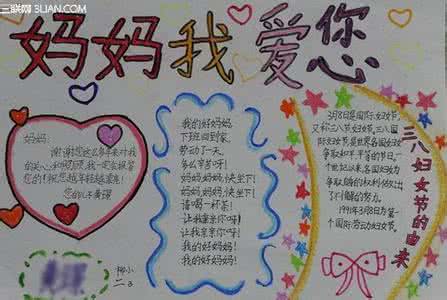 三联网 3LIAN.COM
妈妈我爱您
妈妈:
谢谢您这么多年来对我
的关心和照顾,我一定会报答
您的!祝您越年轻越漂亮!
您的儿子
我的好妈妈,
下班回到家,
劳动了一天,
多么辛苦呀!
妈妈,妈妈,快坐下!
妈妈,妈妈,快坐下!
请喝一杯茶!
让我亲亲你呀!
让我亲亲你呀!
我的好妈妈!
我的好妈妈!
3月8日是国际妇女节,
又称三八节妇女节,三八国
际妇女节是世界各国妇女为
争取和平、平等的节日。一
个世纪以来,各国妇女为
争取解放权利做出
了不懈的努力。
1911年3月8日为第
一个国际劳动妇女节。
三八妇女节的由来
柳小
二3